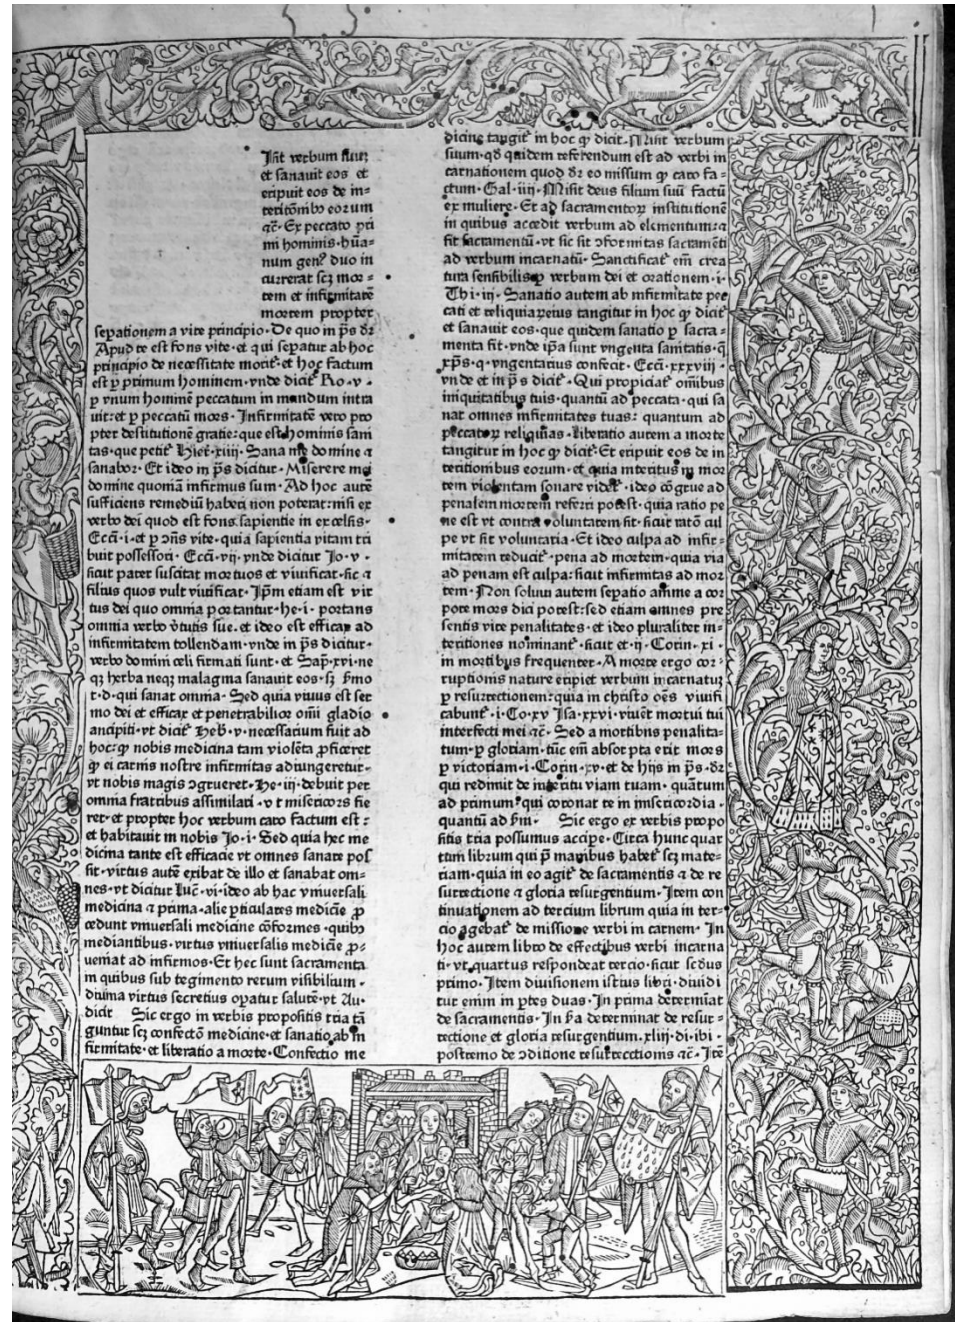 Jnt verbum suuȝ
et sanauit eos et
eripuit eos de in-
teritõnibꝰ eorum
ꝗc̃· Ex peccato pri
mi hominis· hũa-
num genꝰ duo in
currerat scȝ mor-
tem et infirmitatẽ
mortem propter
sepationem a vite principio· De quo in pˢ dr̃
Apud te est fons vite· et qui sepatur ab hoc
principio de necessitate morit᷑· et hoc factum
est ꝑ primum hominem· vnde dicit᷑ Ro· v·
ꝑ vnum hominẽ peccatum in mundum intra
uit: et ꝑ peccatũ mors· Infirmitatẽ vero pro
pter destitutionẽ gratie: que est hominis sani
tas· que petit᷑ Hier̃· xiiii· Sana me domine ⁊
sanabor· Et ideo in pˢ dicitur· Miserere mei
domine quoniã infirmus sum· Ad hoc autẽ
sufficiens remediũ haberi non poterat: nisi ex
verbo dei quod est fons sapientie in excelsis·
Ecc̃i· i· et ꝑ ꝯñs vite· quia sapientia vitam tri
buit possessori· Ecc̃i· vij· vnde dicitur Jo· v·
sicut pater suscitat mortuos et viuificat· sic ⁊
filius quos vult viuificat· Ip̃m etiam est vir
tus dei quo omnia portantur· he· i· portans
omnia verbo v̓tutis sue· et ideo est efficax ad
infirmitatem tollendam· vnde in pˢ dicitur·
verbo domini celi firmati sunt· et Sap̃· xvi· ne
qȝ herba neqȝ malagma sanauit eos· sȝ s̃mo
t· d· qui sanat omnia· Sed quia viuus est ser
mo dei et efficax et penetrabilior om̃i gladio
ancipiti· vt dicit᷑ Heb̃· v· necessarium fuit ad
hoc· ꝙ nobis medicina tam violẽta ꝓficeret
ꝙ ei carnis nostre infirmitas adiungeretur·
vt nobis magis ꝯgrueret· He· iij· debuit per
omnia fratribus assimilari· vt misericors fie
ret· et propter hoc verbum caro factum est:
et habitauit in nobis Jo· i· Sed quia hec me
dicina tante est efficacie vt omnes sanare pos
sit· virtus autẽ exibat de illo et sanabat om-
nes· vt dicitur Luc̃· vi· ideo ab hac vniuersali
medicina ⁊ prima· alie ꝑticulares medicĩe ꝓ
cedunt vniuersali medicine cõformes· quibꝰ
mediantibus· virtus vniuersalis medicĩe ꝑ-
ueniat ad infirmos· Et hec sunt sacramenta
in quibus sub tegimento rerum visibilium·
diuina virtus secretius oꝑatur salutẽ· vt Au·
dicit Sic ergo in verbis propositis tria tã
guntur scȝ confectõ medicine· et sanatio ab in
firmitate· et liberatio a morte· Confectio me
dicine tangit᷑ in hoc ꝙ dicit· Misit verbum
suum· qđ quidem referendum est ad verbi in
carnationem quod dr̃ eo missum ꝙ caro fa-
ctum· Gal· iiij· Misit deus filium suũ factũ
ex muliere· Et ad sacramentoꝝ institutionẽ
in quibus accedit verbum ad elementum: ⁊
fit sacramentũ· vt sic sit ꝯformitas sacramẽti
ad verbum incarnatũ· Sanctificat᷑ em̃ crea
tura sensibilis ꝑ verbum dei et orationem· i·
Thi· iij· Sanatio autem ab infirmitate pec
cati et reliquiaꝝ eius tangitur in hoc ꝙ dicit᷑
et sanauit eos· que quidem sanatio ꝑ sacra-
menta fit· vnde ip̃a sunt vngenta sanitatis· q̃
xp̃s· q· vngentarius confecit· Ecc̃i· xxxviij·
vnde et in pˢ dicit᷑· Qui propiciat᷑ om̃ibus
iniquitatibus tuis· quantũ ad peccata· qui sa
nat omnes infirmitates tuas: quantum ad
peccatoꝝ reliquias· Liberatio autem a morte
tangitur in hoc ꝙ dicit᷑· Et eripuit eos de in
teritionibus eorum· et quia interitus in mor
tem violentam sonare videt᷑· ideo cõgrue ad
penalem mortem referri potest· quia ratio pe
ne est vt contra voluntatem sit· sicut ratõ cul
pe vt sit voluntaria· Et ideo culpa ad infir-
mitatem reducit᷑· pena ad mortem· quia via
ad penam est culpa: sicut infirmitas ad mor
tem· Non solum autem sepatio anime a cor
pore mors dici potest: sed etiam omnes pre
sentis vite penalitates· et ideo pluraliter in-
teritiones nominant᷑· sicut et· ij· Corin· xi·
in mortibus frequenter· A morte ergo cor-
ruptionis nature eripiet verbum incarnatuȝ
ꝑ resurrectionem: quia in christo oẽs viuifi
cabunt᷑· i· Co· xv Isa· xxvi· viuẽt mortui tui
interfecti mei ⁊c̃· Sed a mortibus penalita-
tum· ꝑ gloriam· tũc em̃ absorpta erit mors
ꝑ victoriam· i· Corin· xv· et de hijs in pˢ· dr̃
qui redimit de interitu viam tuam· quãtum
ad primum· qui coronat te in misericordia·
quantũ ad s̃m· Sic ergo ex verbis propo
sitis tria possumus accipe· Circa hunc quar
tum librum qui p̃ manibus habet᷑ scȝ mate-
riam· quia in eo agit᷑ de sacramentis ⁊ de re
surrectione ⁊ gloria resurgentium· Item con
tinuationem ad tercium librum quia in ter-
cio agebat᷑ de missione verbi in carnem· In
hoc autem libro de effectibus verbi incarna
ti· vt quartus respondeat tercio· sicut sc̃dus
primo· Item diuisionem istius libri· diuidi
tur enim in ꝑtes duas· In prima determĩat
de sacramentis· In s̃a determinat de resur-
rectione et gloria resurgentium. xliij· di· ibi·
postremo de ꝯditione resurrectionis ⁊c̃· Itẽ